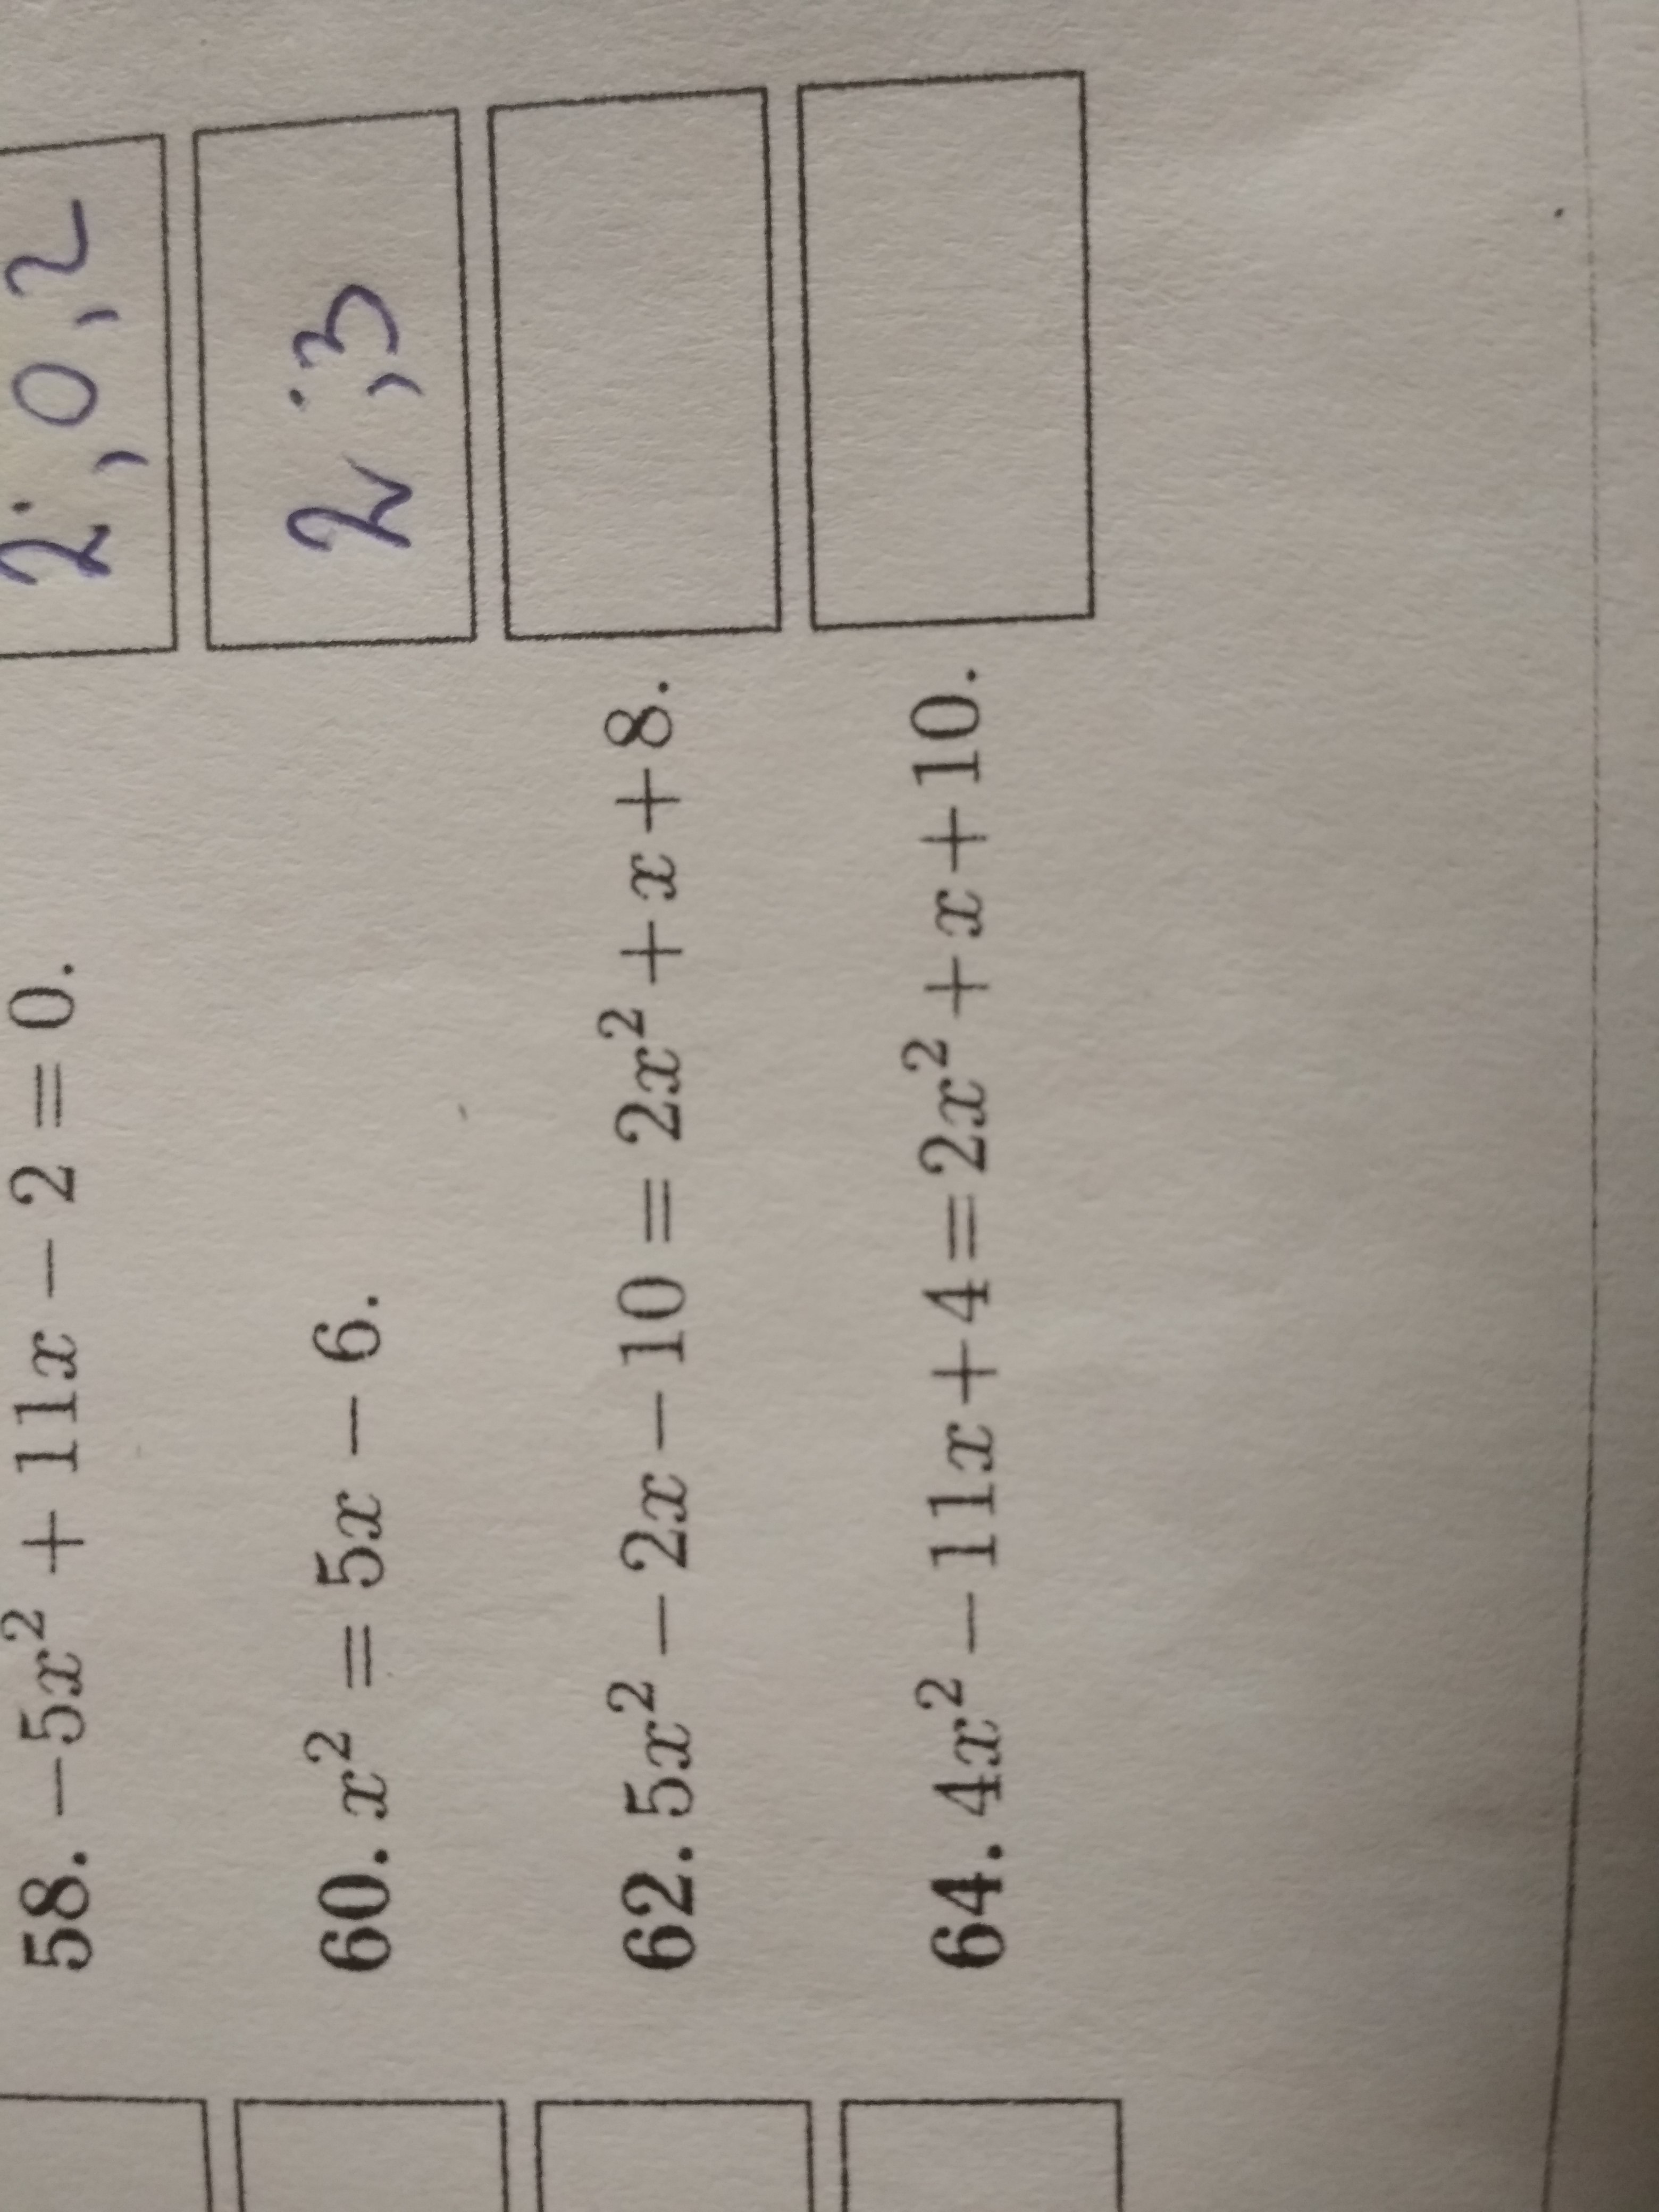 58. −5x² + 11x − 2 = 0. 2; 0,2
60. x² = 5x − 6. 2; 3
62. 5x² − 2x − 10 = 2x² + x + 8.
64. 4x² − 11x + 4 = 2x² + x + 10.